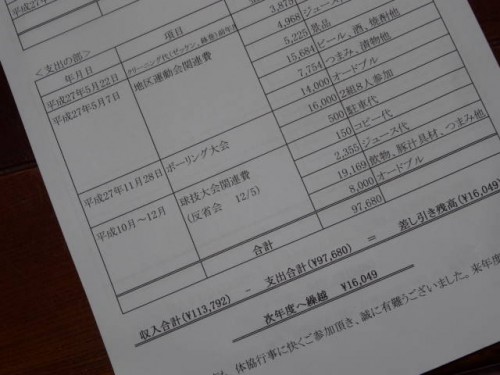 平成27年
3,875
＜支出の部＞
年月日 項目
平成27年5月22日 クリーニング代(ゼッケン、
4,968 ジュース
平成27年5月7日 地区運動会関連費 5,225 景品
15,684 ビール、酒、焼酎他
7,754 つまみ、漬物他
14,000 オードブル
平成27年11月28日 ボーリング大会 16,000 2組8人参加
500 駐車代
150 コピー代
平成10月～12月 球技大会関連費 2,355 ジュース代
(反省会 12/5) 19,169 飲物、豚汁具材、つまみ他
8,000 オードブル
合計 97,680
収入合計(¥113,792) - 支出合計(¥97,680) = 差し引き残高(¥16,049)
次年度へ繰越 ¥16,049
体協行事に快くご参加頂き、誠に有難うございました。来年度